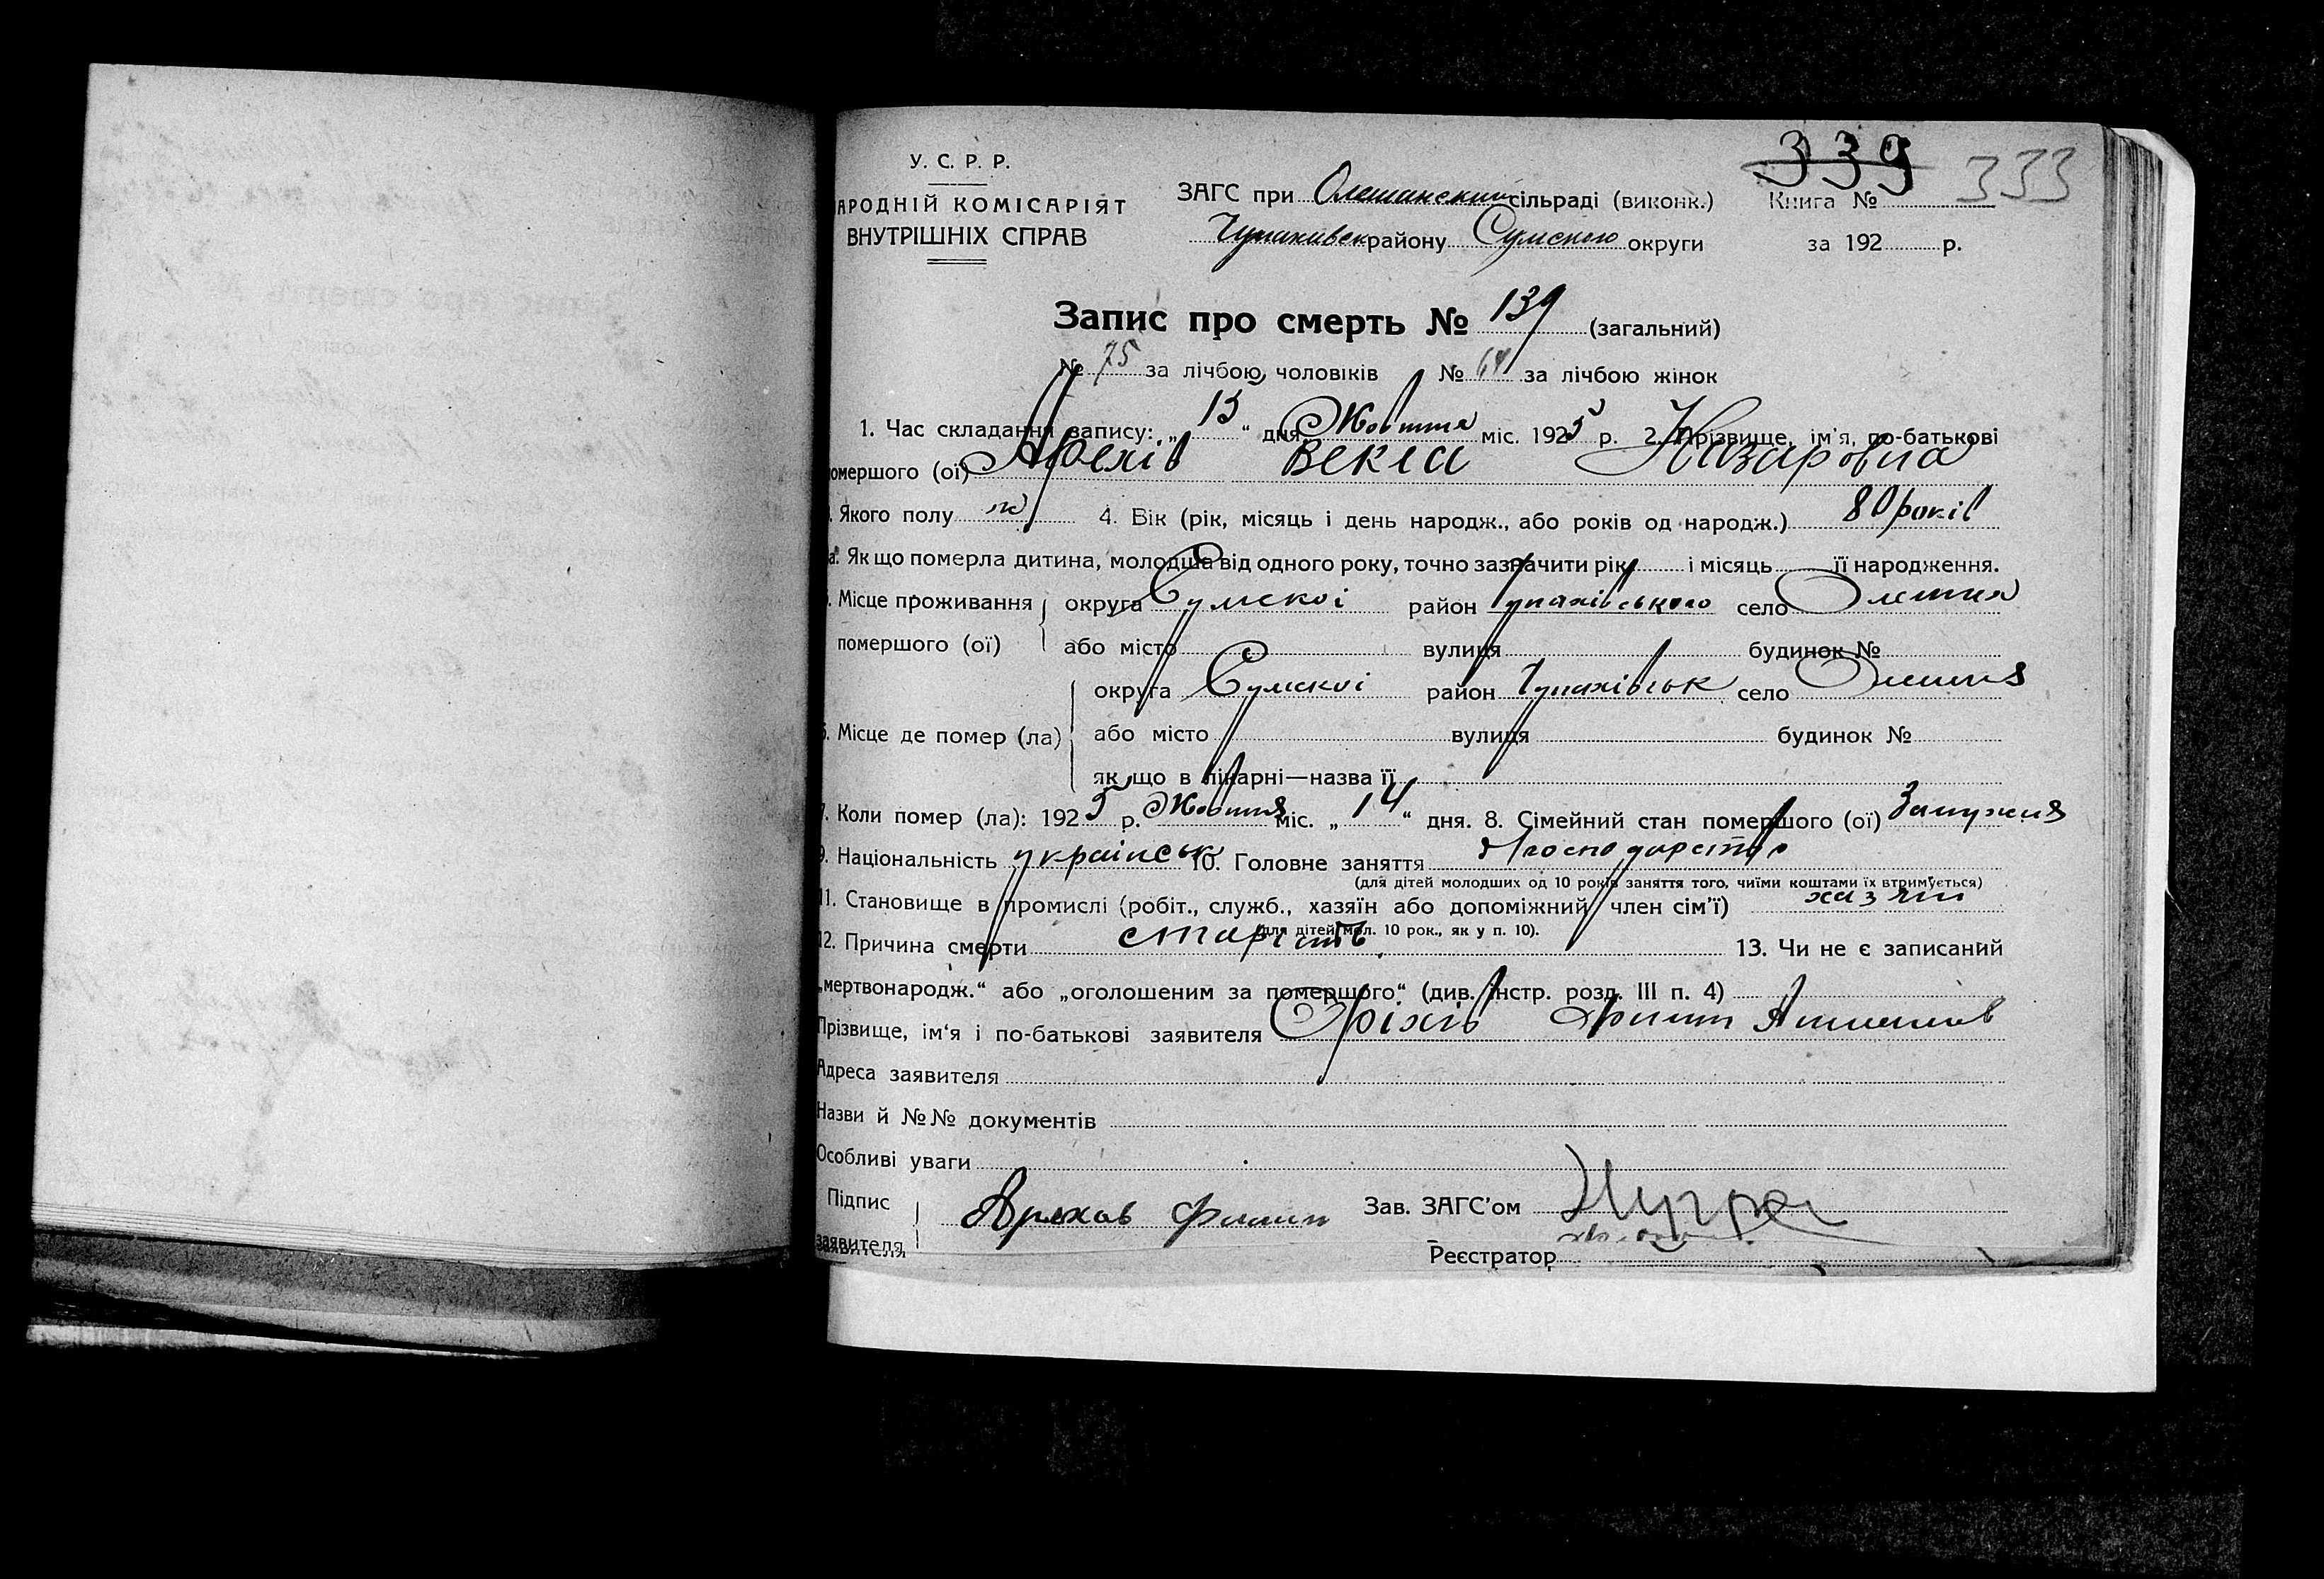 339 333
У. С. Р. Р.
НАРОДНІЙ КОМІСАРІЯТ
ВНУТРІШНІХ СПРАВ
ЗАГС при Олешинский сільраді (виконк.) Книга №
району Сумского округи за 192 р.
Запис про смерть № 139 (загальний)
№ 75 за лічбою чоловіків № 64 за лічбою жінок
1. Час складання запису: „15“ дня Жовтня міс. 1925 р. 2. Прізвище, ім'я, по-батькові
помершого (ої) Арєхів Векла Назаровна
Якого полу ж 4. Вік (рік, місяць і день народж., або років од народж.) 80 років
а. Як що померла дитина, молодша від одного року, точно зазначити рік і місяць її народження.
Місце проживання округа Сумскоі район Чупахівського село Олешня
помершого (ої) або місто вулиця будинок №
округа Сумскоі район Чупахівськ село Олешня
6. Місце де помер (ла) або місто вулиця будинок №
як що в лікарні—назва її
7. Коли помер (ла): 1925 р. Жовтня міс. „14“ дня. 8. Сімейний стан помершого (ої) Замужня
9. Національність українськ 10. Головне заняття господарство
(для дітей молодших од 10 років заняття того, чиїми коштами їх втримується)
11. Становище в промислі (робіт., служб., хазяїн або допоміжний член сім'ї) хазяін
(для дітей мол. 10 рок., як у п. 10).
12. Причина смерти старість 13. Чи не є записаний
„мертвонародж.“ або „оголошеним за помершого“ (див. інстр. розд. III п. 4)
Прізвище, ім'я і по-батькові заявителя Оріхів
Адреса заявителя
Назви й №№ документів
Особливі уваги
Підпис заявителя Арехов Филип Зав. ЗАГС'ом
Реєстратор